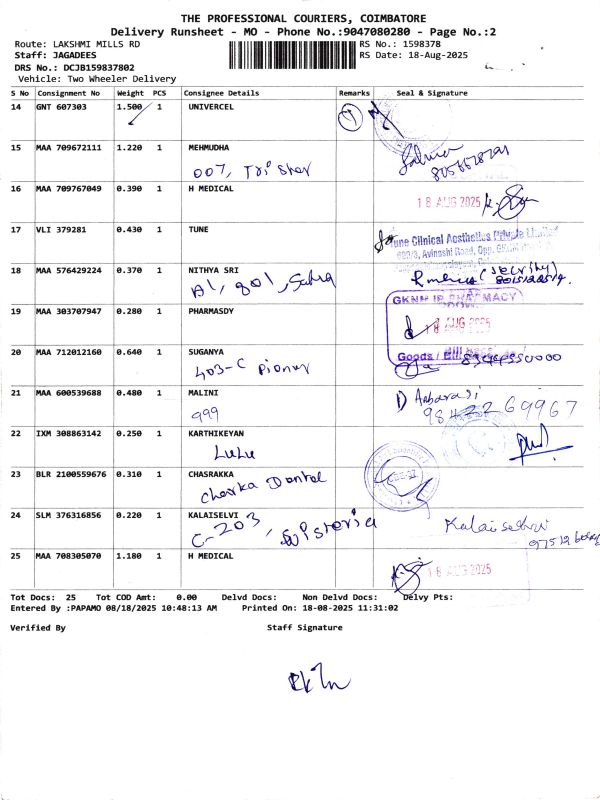 THE PROFESSIONAL COURIERS, COIMBATORE
Delivery Runsheet - MO - Phone No.:9047080280 - Page No.:2
Route: LAKSHMI MILLS RD
RS No.: 1598378
Staff: JAGADEES
RS Date: 18-Aug-2025
DRS No.: DCJB159837802
Vehicle: Two Wheeler Delivery
S No Consignment No Weight PCS Consignee Details Remarks Seal & Signature
14 GNT 607303 1.500 1 UNIVERCEL
15 MAA 709672111 1.220 1 MEHMUDHA
007, Tristar
16 MAA 709767049 0.390 1 H MEDICAL
18 AUG 2025
17 VLI 379281 0.430 1 TUNE
Tune Clinical Aesthetics Private Limited
Avinashi Road, Opp.
18 MAA 576429224 0.370 1 NITHYA SRI
A1, 801, Sahra
(Security)
19 MAA 303707947 0.280 1 PHARMASDY
GKNM IP PHARMACY
18 AUG 2025
Goods / Bill
20 MAA 712012160 0.640 1 SUGANYA
403-C Pioner
21 MAA 600539688 0.480 1 MALINI
999
D Anbarasi
9842269967
22 IXM 308863142 0.250 1 KARTHIKEYAN
LuLu
23 BLR 2100559676 0.310 1 CHASRAKKA
Charka Dental
24 SLM 376316856 0.220 1 KALAISELVI
C-203, Wisteria
Kalaiselvi
25 MAA 708305070 1.180 1 H MEDICAL
18 AUG 2025
Tot Docs: 25 Tot COD Amt: 0.00 Delvd Docs: Non Delvd Docs: Delvy Pts:
Entered By :PAPAMO 08/18/2025 10:48:13 AM Printed On: 18-08-2025 11:31:02
Verified By Staff Signature